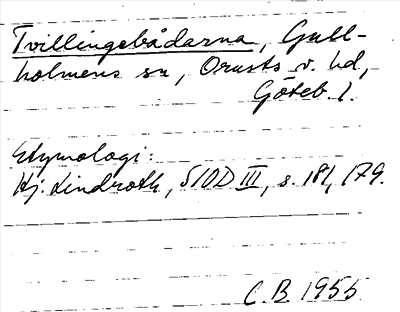 Tvillingebådarna, Gull-
holmens sn, Orusts v. hd,
Göteb. l.
Etymologi:
Hj. Lindroth, SIOD III, s. 181, 179.
C.B. 1955